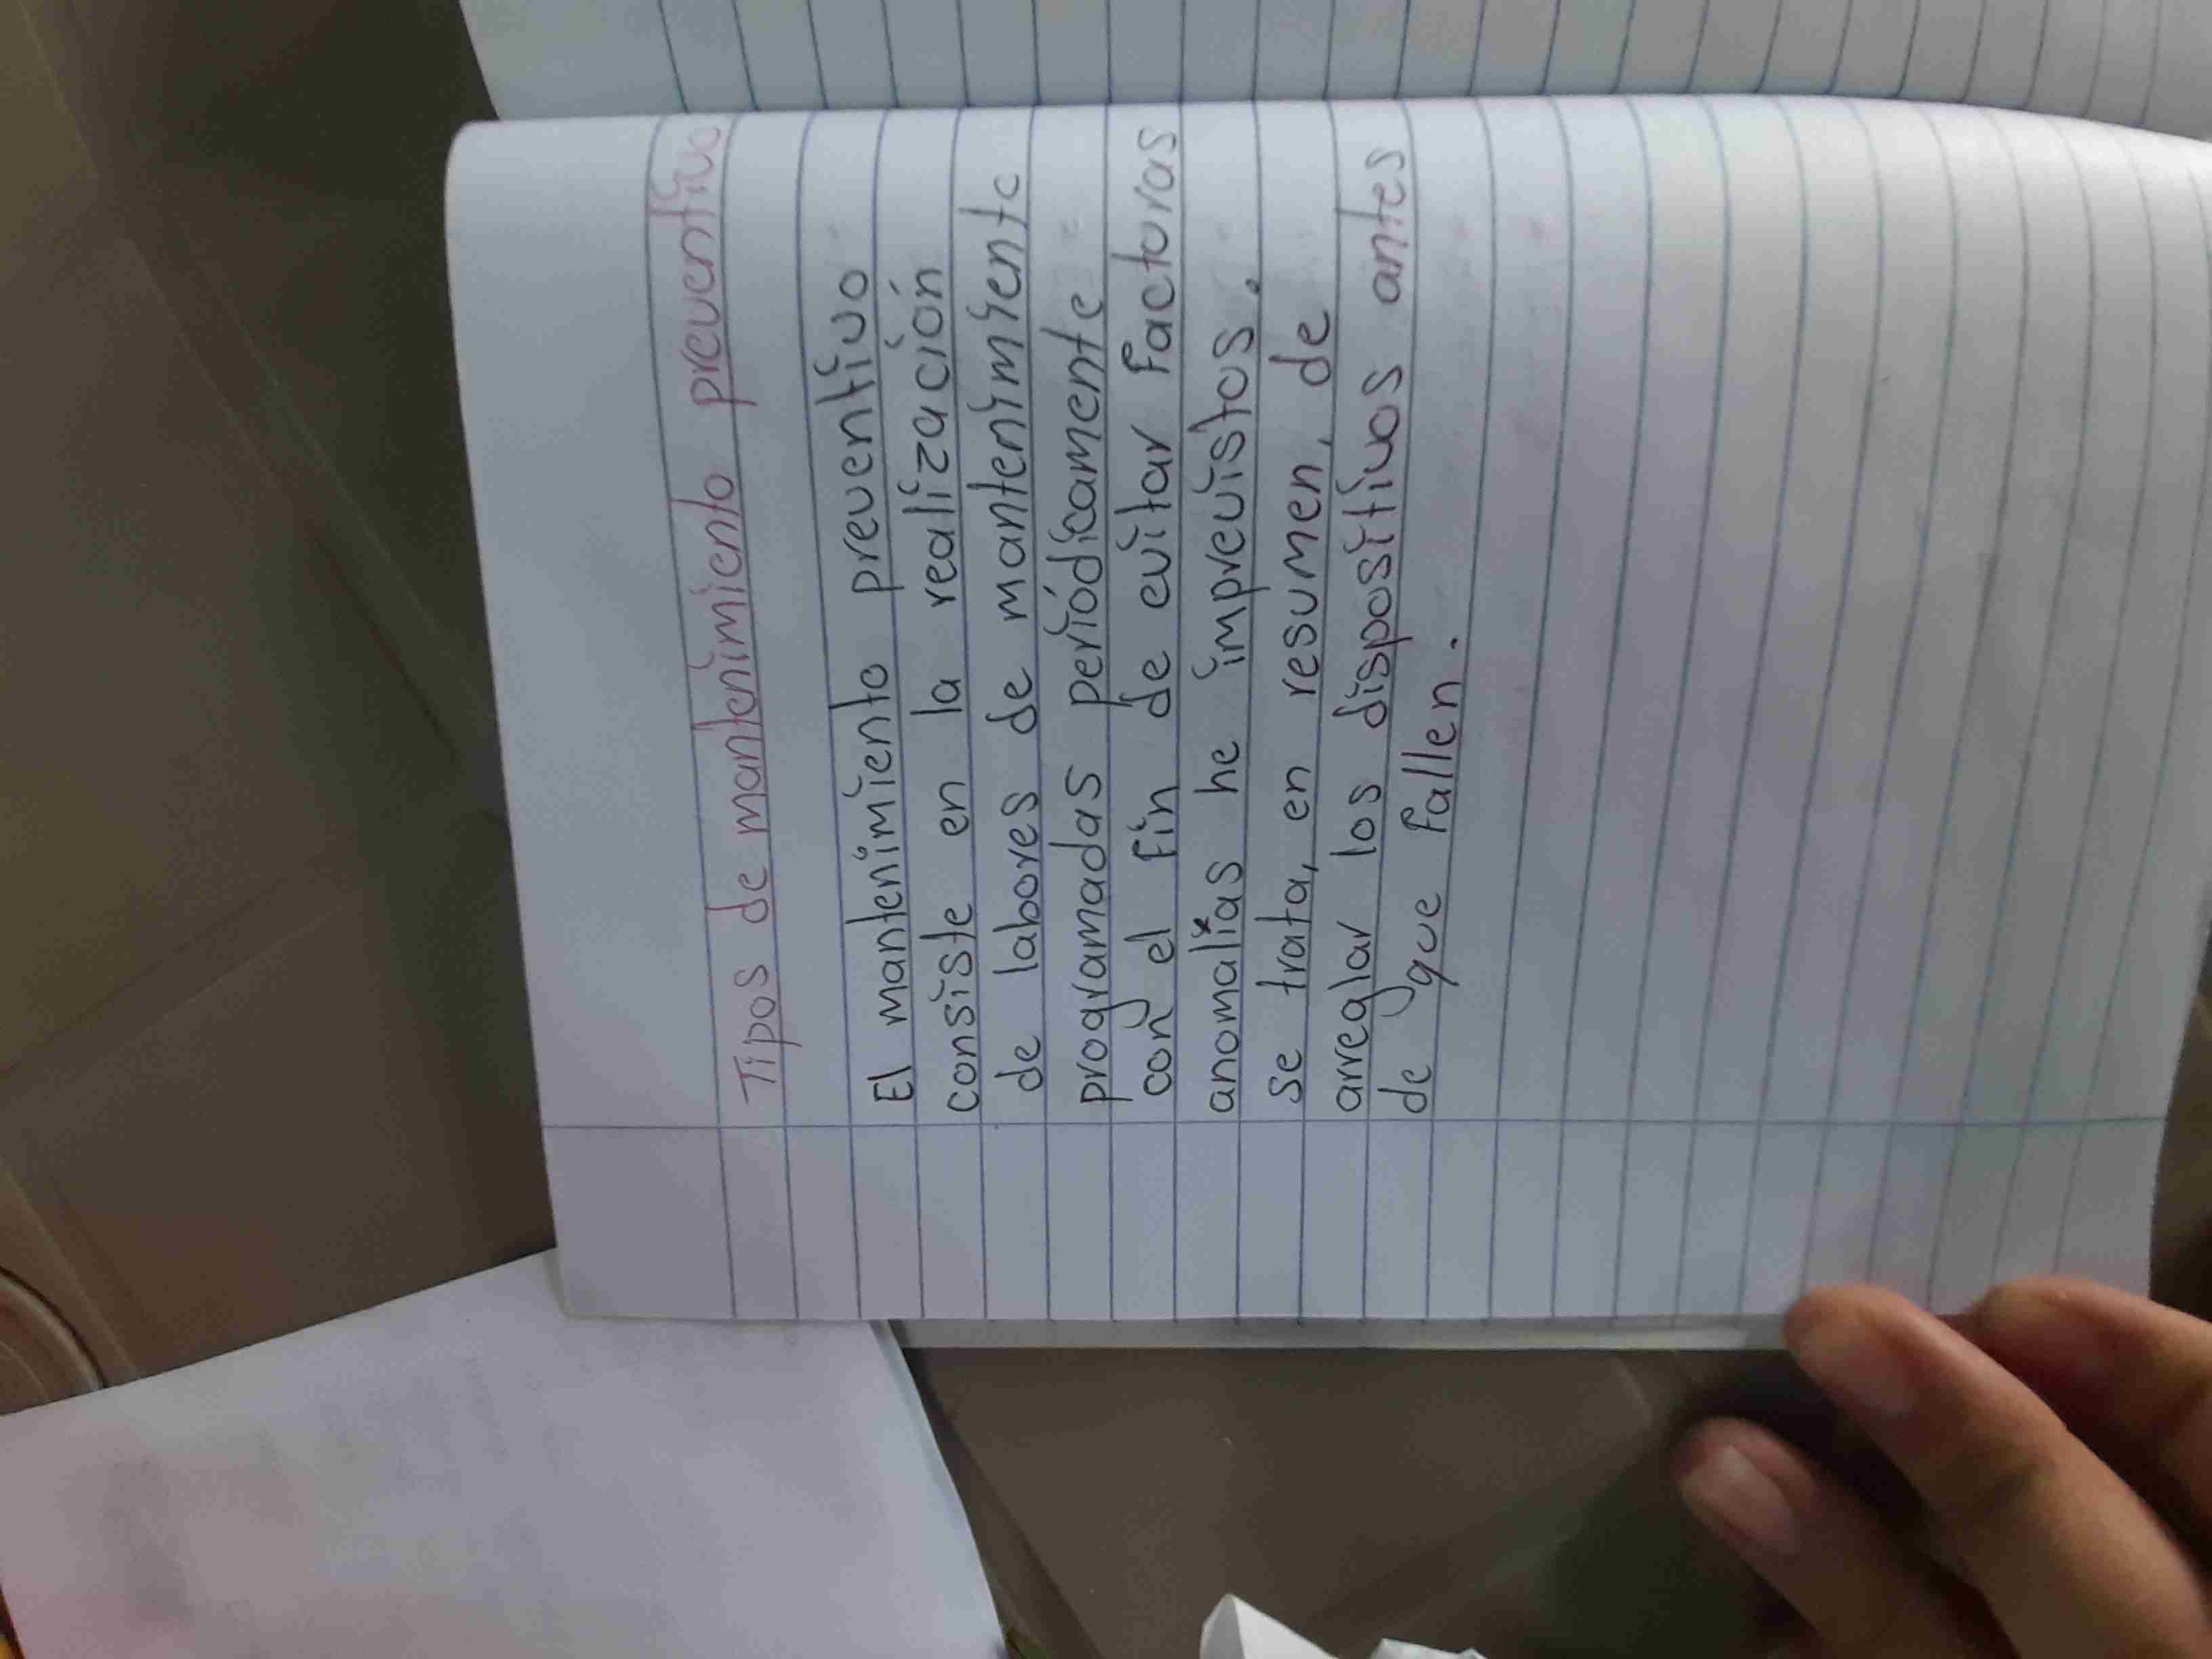 Tipos de mantenimiento preventivo
El mantenimiento preventivo
consiste en la realización
de labores de mantenimiento
programadas periódicamente
con el fin de evitar factoras
anomalías he imprevistos.
se trata, en resumen, de
arreglar los dispositivos antes
de que fallen.